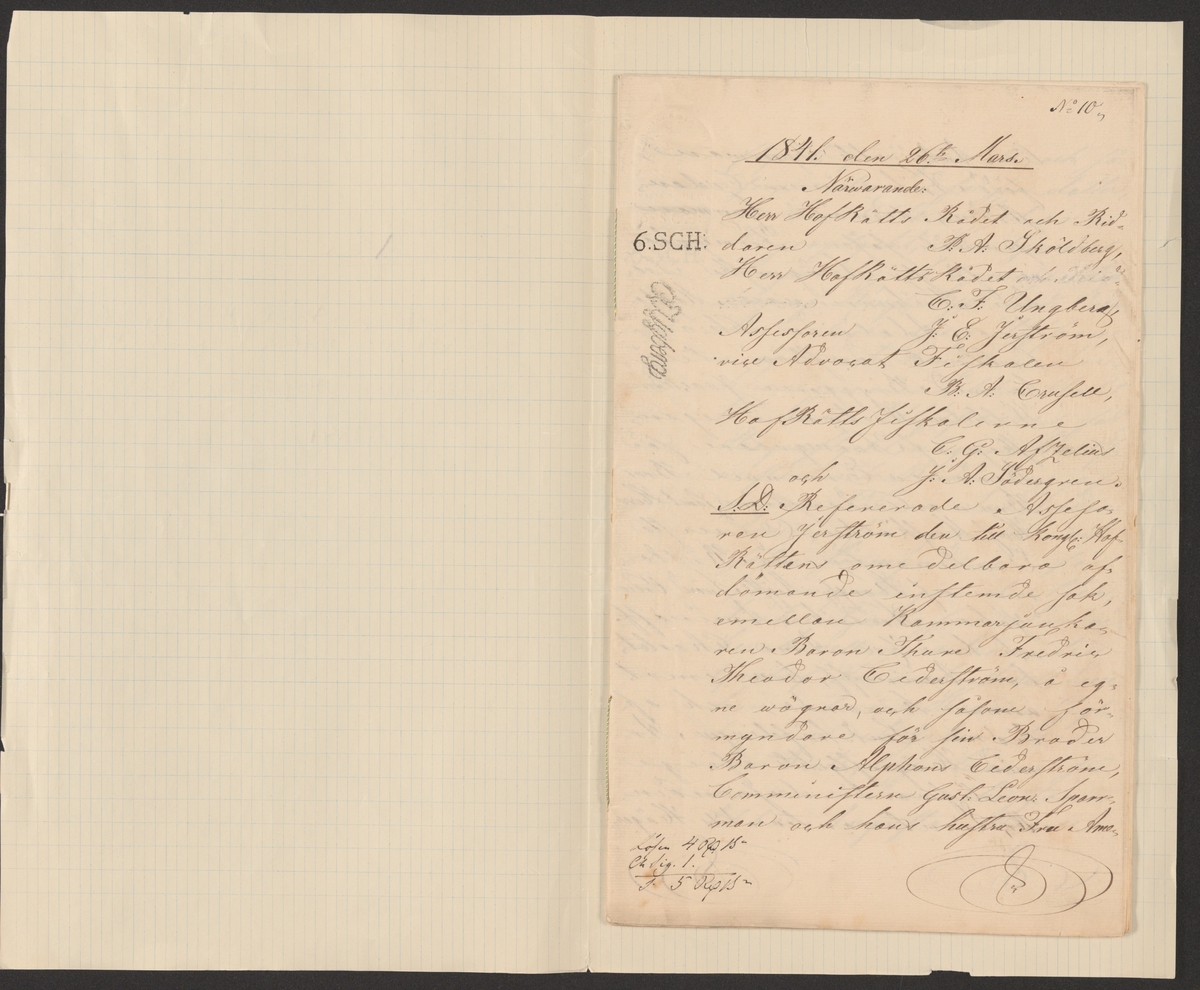 No 10.
1841. den 26te Mars.
Närwarande:
Herr HofRätts Rådet och Rid-
6.SCH:
daren P. A: Sköldberg,
Herr HofRättsRådet
C: F: Ungberg,
Assessoren J: E: Jerström,
vice Advocat Fiskalen
B: A: Crusell,
HofRätts Fiskalerne
C: G: Afzelius
och J: A: Södergren.
S. D. Refererade Assesso-
ren Jerström den till Kongl: Hof
Rättens omedelbara af-
dömande instemde sak,
emellan Kammarjunka-
ren Baron Thure Fredric
Theodor Cederström, å eg-
ne wägnar, och såsom för-
myndare för sin Broder
Baron Alphons Cederström,
Comministern Gust: Leon: Sparr-
man och hans hustru Fru Ama-
Lösen 4 Rd 15
Ch Sig. 1.
S. 5 Rd 15